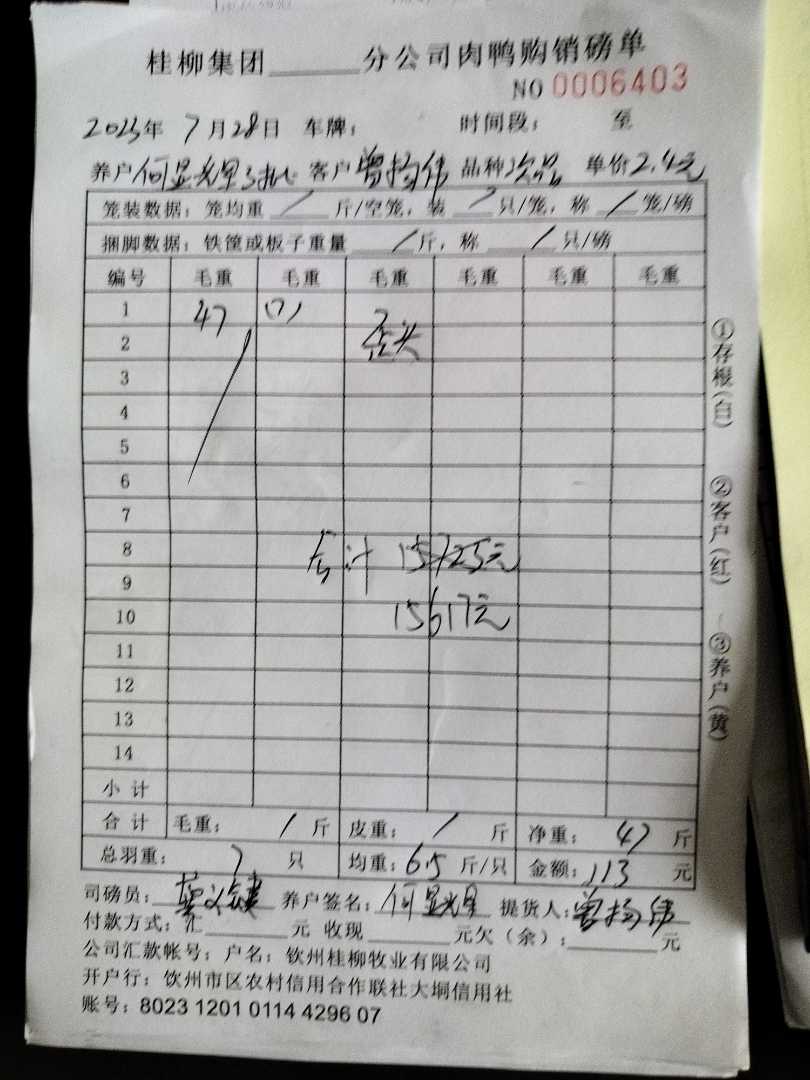 桂柳集团______分公司肉鸭购销磅单
NO 0006403
2023年 7月28日 车牌： 时间段： 至
养户 何显光 客户 曾扬伟 品种 次品 单价 2.4元
笼装数据：笼均重 / 斤/空笼，装 / 只/笼，称 / 笼/磅
捆脚数据：铁筐或板子重量 / 斤，称 / 只/磅
编号 毛重 毛重 毛重 毛重 毛重 毛重
1 47 (7)
2 歪头
3
4
5
6
7
8 合计 15725元
9
10 15617元
11
12
13
14
小计
合计 毛重： / 斤 皮重： / 斤 净重： 47 斤
总羽重： 7 只 均重：6.5 斤/只 金额：113 元
司磅员： 养户签名：何显光 提货人：曾扬伟
付款方式：汇______元 收现______元欠（余）：______元
公司汇款帐号：户名：钦州桂柳牧业有限公司
开户行：饮州市区农村信用合作联社大垌信用社
账号：8023 1201 0114 4296 07
①存根(白)
②客户(红)
③养户(黄)